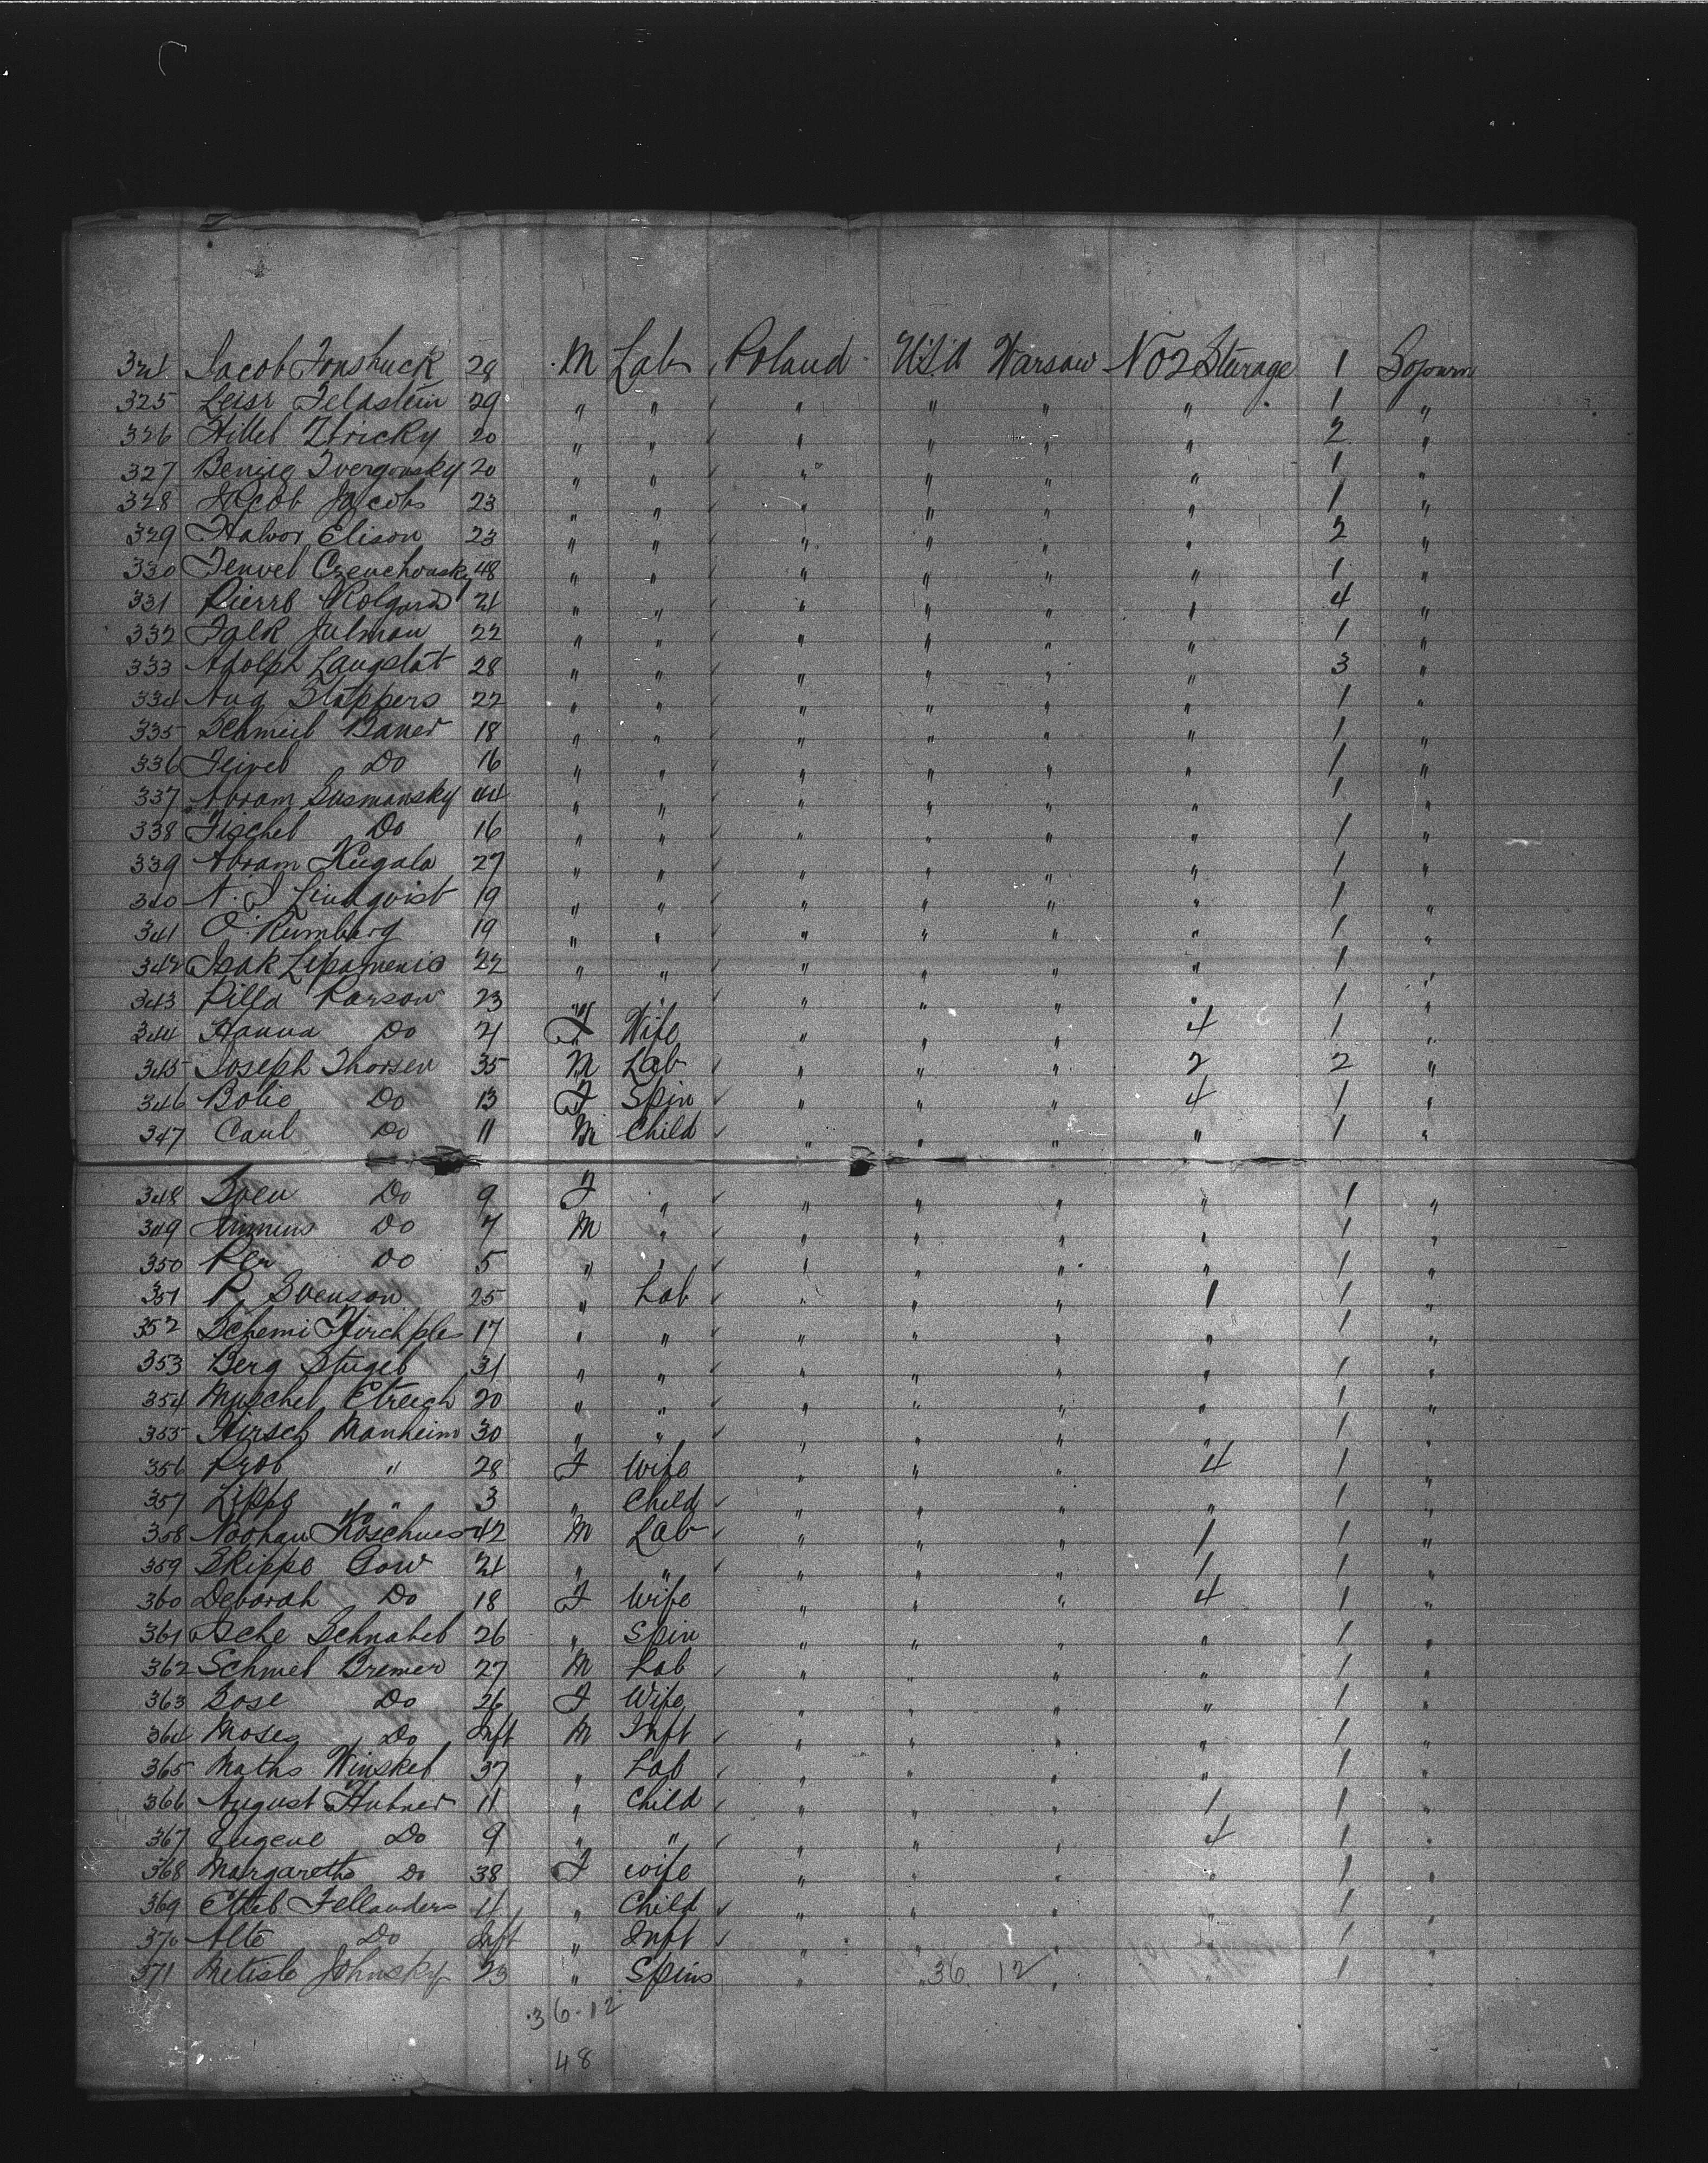 324 Jacob Fonshuck 28 M Lab Poland USA Warsaw No 2 Sturage 1 Sojourn
325 Leisr Feldstein 29 " " " " " " 1 "
326 Hillel Ztricky 20 " " " " " " 2 "
327 Benjie Tvergonsky 20 " " " " " " 1 "
328 Jacob Jacobs 23 " " " " " " 1 "
329 Halvor Elison 23 " " " " " " 2 "
330 Czeuchonsky 48 " " " " " " 1 "
331 Pierre Kolgard 21 " " " " " " 4 "
332 Falk Julman 22 " " " " " " 1 "
333 Adolph Langslat 28 " " " " " " 3 "
334 Aug Stappers 22 " " " " " " 1 "
335 Schmeil Bauer 18 " " " " " " 1 "
336 Feivel Do 16 " " " " " " 1 "
337 Abram Susmansky 44 " " " " " " 1 "
338 Fischel Do 16 " " " " " " 1 "
339 Abram Kugala 27 " " " " " " 1 "
340 A. J Lindqvist 19 " " " " " " 1 "
341 O. Rumberg 19 " " " " " " 1 "
342 Isak 22 " " " " " " 1 "
343 Pilla Parson 23 " " " " " " 1 "
344 Hanna Do 21 F Wife " " " 4 1 "
345 Joseph Thorsen 35 M Lab " " " 2 2 "
346 Bolie Do 13 F Spin " " " 4 1 "
347 Carl Do 11 M Child " " " " 1 "
348 Sven Do 9 F " " " " " 1 "
349 Do 7 M " " " " " 1 "
350 Per Do 5 " " " " " " 1 "
351 P. Svenson 25 " Lab " " " 1 1 "
352 Schemi Hirchple 17 " " " " " " 1 "
353 Berg Stugel 31 " " " " " " 1 "
354 Muschel Etreich 20 " " " " " " 1 "
355 Hirsch Manheim 30 " " " " " " 1 "
356 Prob " 28 F Wife " " " 4 1 "
357 Lippe " 3 " Child " " " " 1 "
358 Noohan Koschues 42 M Lab " " " 1 1 "
359 Skippe Gow 21 " " " " " 1 1 "
360 Deborah Do 18 F Wife " " " 4 1 "
361 Ische Schnabel 26 " Spin " " " " 1 "
362 Schmel Bremer 27 M Lab " " " " 1 "
363 Sose Do 26 F Wife " " " " 1 "
364 Moses Do Inft M Inft " " " " 1 "
365 Maths Winskel 37 " Lab " " " " 1 "
366 August Hubner 11 " Child " " " 1 1 "
367 Eugene Do 9 " " " " " 4 1 "
368 Margarethe Do 38 F wife " " " " 1 "
369 Ettel Fellanders 11 " Child " " " " 1 "
370 Alte Do Inft " Inft " " " " 1 "
371 Metisle Johnsky 23 " Spins " " 36 12 " " 1
36-12
48